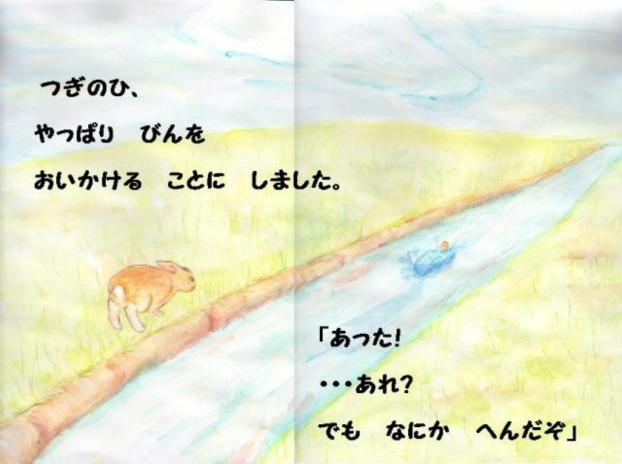 つぎのひ、
やっぱり　びんを
おいかける　ことに　しました。
「あった!
・・・あれ?
でも　なにか　へんだぞ」